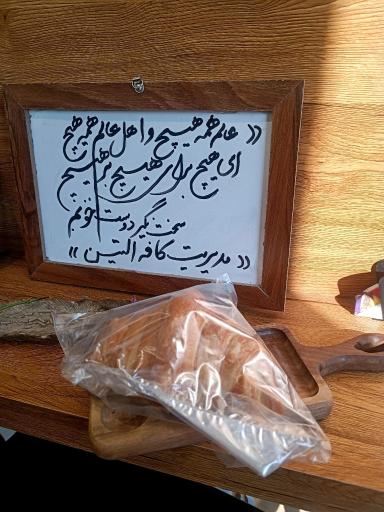 « عالم همه هیچ و اهل عالم همه هیچ
ای هیچ برای هیچ بر هیچ مپیچ
سخت نگیر دوست خوبم
« مدیریت کافه التین »